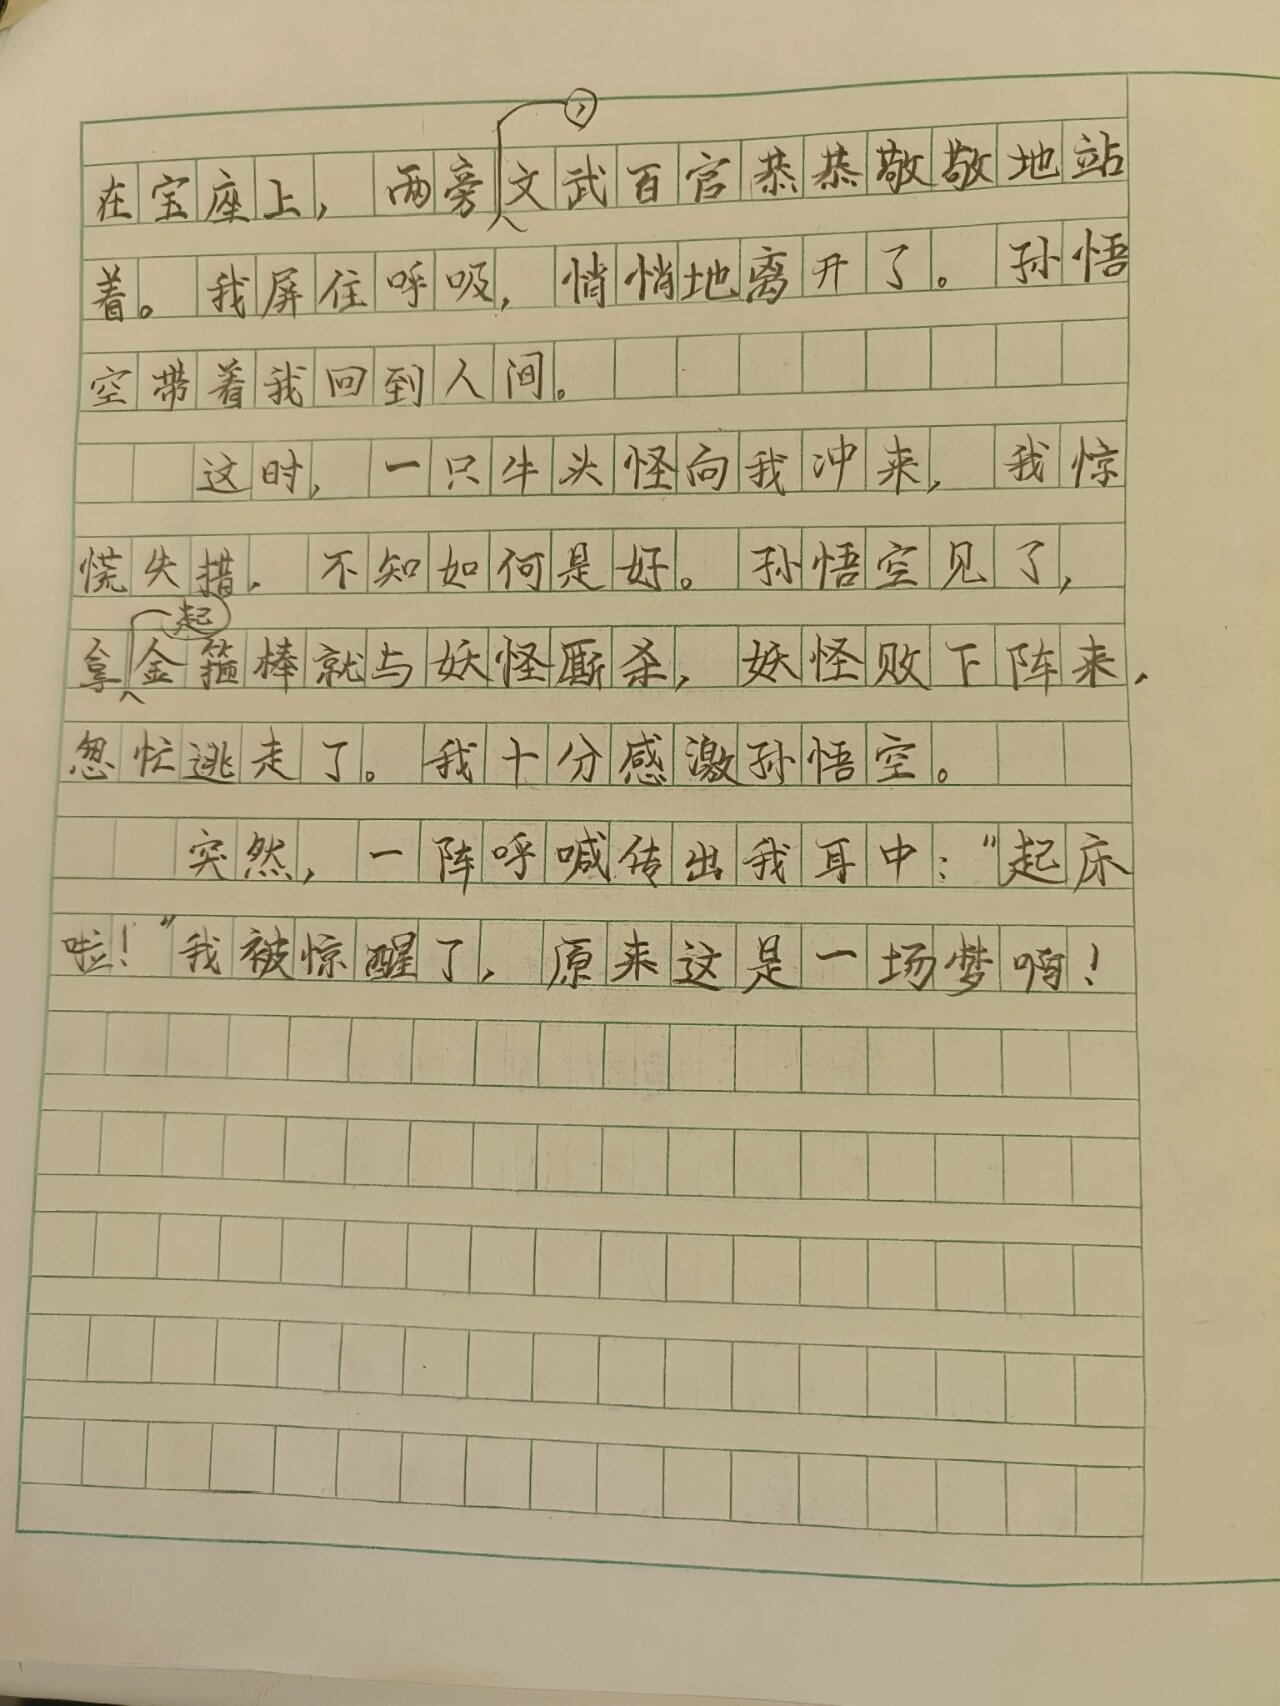 在宝座上，两旁，文武百官恭恭敬敬地站
着。我屏住呼吸，悄悄地离开了。孙悟
空带着我回到人间。
这时，一只牛头怪向我冲来，我惊
慌失措，不知如何是好。孙悟空见了，
拿起金箍棒就与妖怪厮杀，妖怪败下阵来，
忽忙逃走了。我十分感激孙悟空。
突然，一阵呼喊传出我耳中："起床
啦！"我被惊醒了，原来这是一场梦啊！